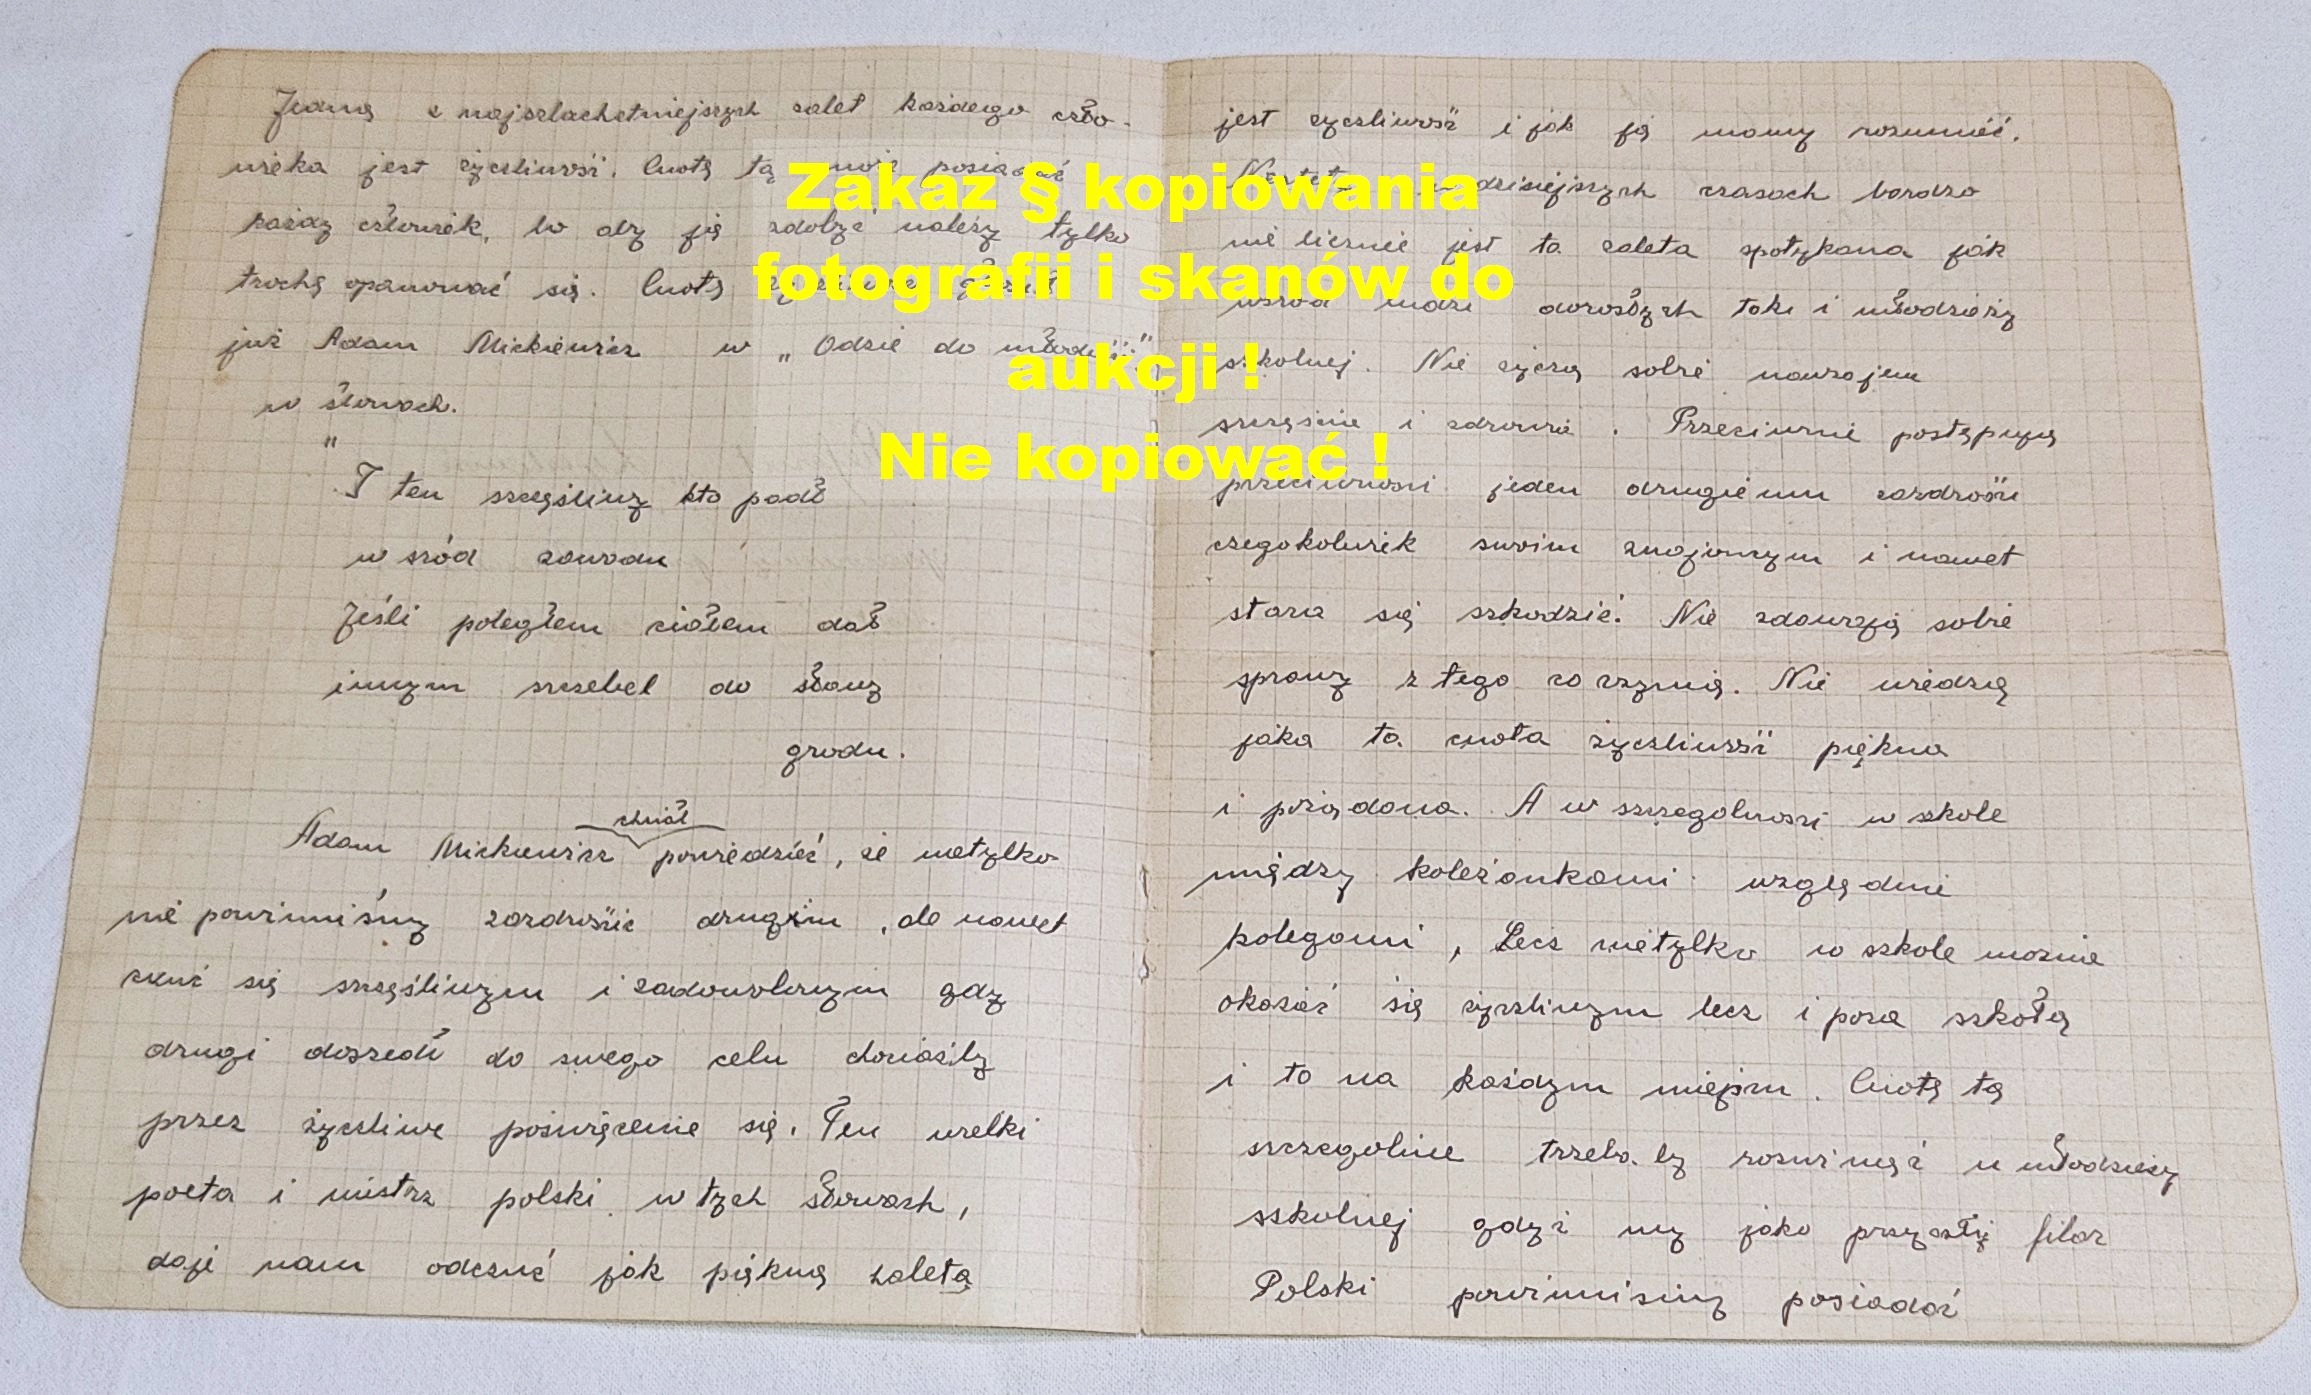 Jedną z najszlachetniejszych zalet każdego czło-
wieka jest życzliwość. Cnotę tą może posiadać
każdy człowiek, bo aby ją zdobyć należy tylko
trochę opanować się. Cnotę
już Adam Mickiewicz w „Odzie do młodości"
w słowach.
"
I ten szczęśliwy kto padł
w śród zawodu
Jeśli poległem ciałem dał
innym szczebel do sławy
grodu.
chciał
Adam Mickiewicz powiedzieć, że nietylko
nie powinniśmy zazdrościć drugim, ale nawet
czuć się szczęśliwym i zadowolonym gdy
drugi doszedł do swego celu chociażby
przez życzliwe poświęcenie się. Ten wielki
poeta i mistrz polski w tych słowach,
daje nam odczuć jak piękną zaletą
jest życzliwość i jak ją mamy rozumieć.
Niestety w dzisiejszych czasach bardzo
nie licznie jest ta zaleta spotykana jak
wśród ludzi dorosłych tak i młodzieży
szkolnej. Nie życzą sobie nawzajem
szczęścia i zdrowia. Przeciwnie postępują
przeciwności jeden drugiemu zazdrości
czegokolwiek swoim znajomym i nawet
stara się szkodzić. Nie zdawają sobie
sprawy z tego co czynią. Nie wiedzą
jaka to cnota życzliwość piękna
i pożądana. A w szczególności w szkole
między koleżankami względnie
kolegami, Lecz nietylko w szkole można
okazać się życzliwym lecz i poza szkołą
i to na każdym miejscu. Cnotę tą
szczególnie trzeba by rozwinąć u młodzieży
szkolnej gdyż my jako przyszły filar
Polski powinniśmy posiadać
Zakaz § kopiowania
fotografii i skanów do
aukcji !
Nie kopiować !